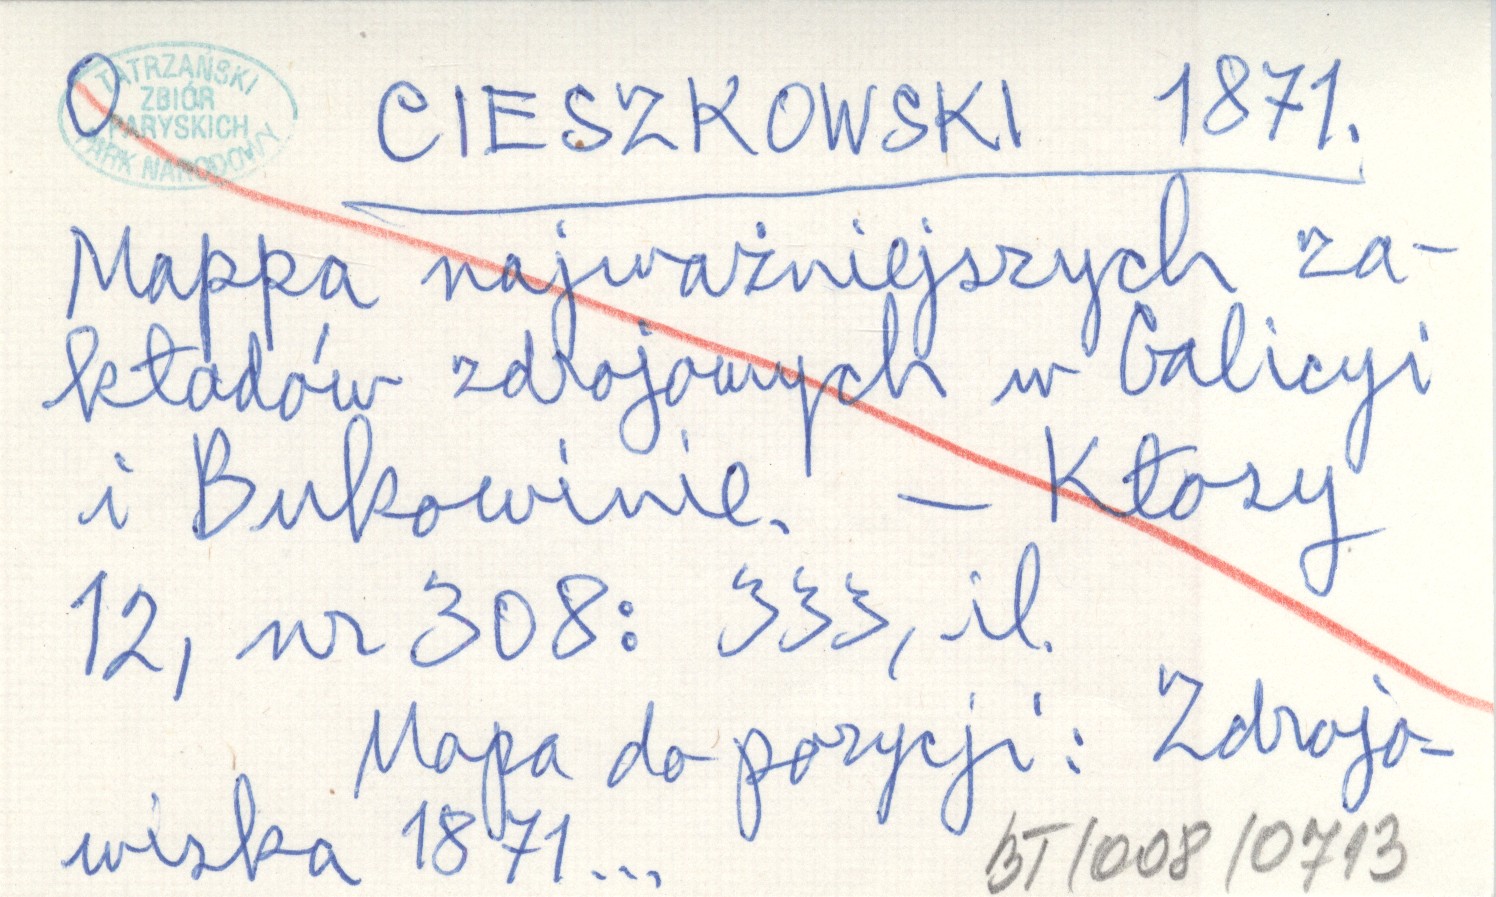 O
TATRZAŃSKI
ZBIÓR
PARYSKICH
PARK NARODOWY
CIESZKOWSKI 1871.
Mappa najważniejszych za-
kładów zdrojowych w Galicyi
i Bukowinie. — Kłosy
12, nr 308: 333, il.
Mapa do pozycji: Zdrojo-
wiska 1871...
BT/008/0713